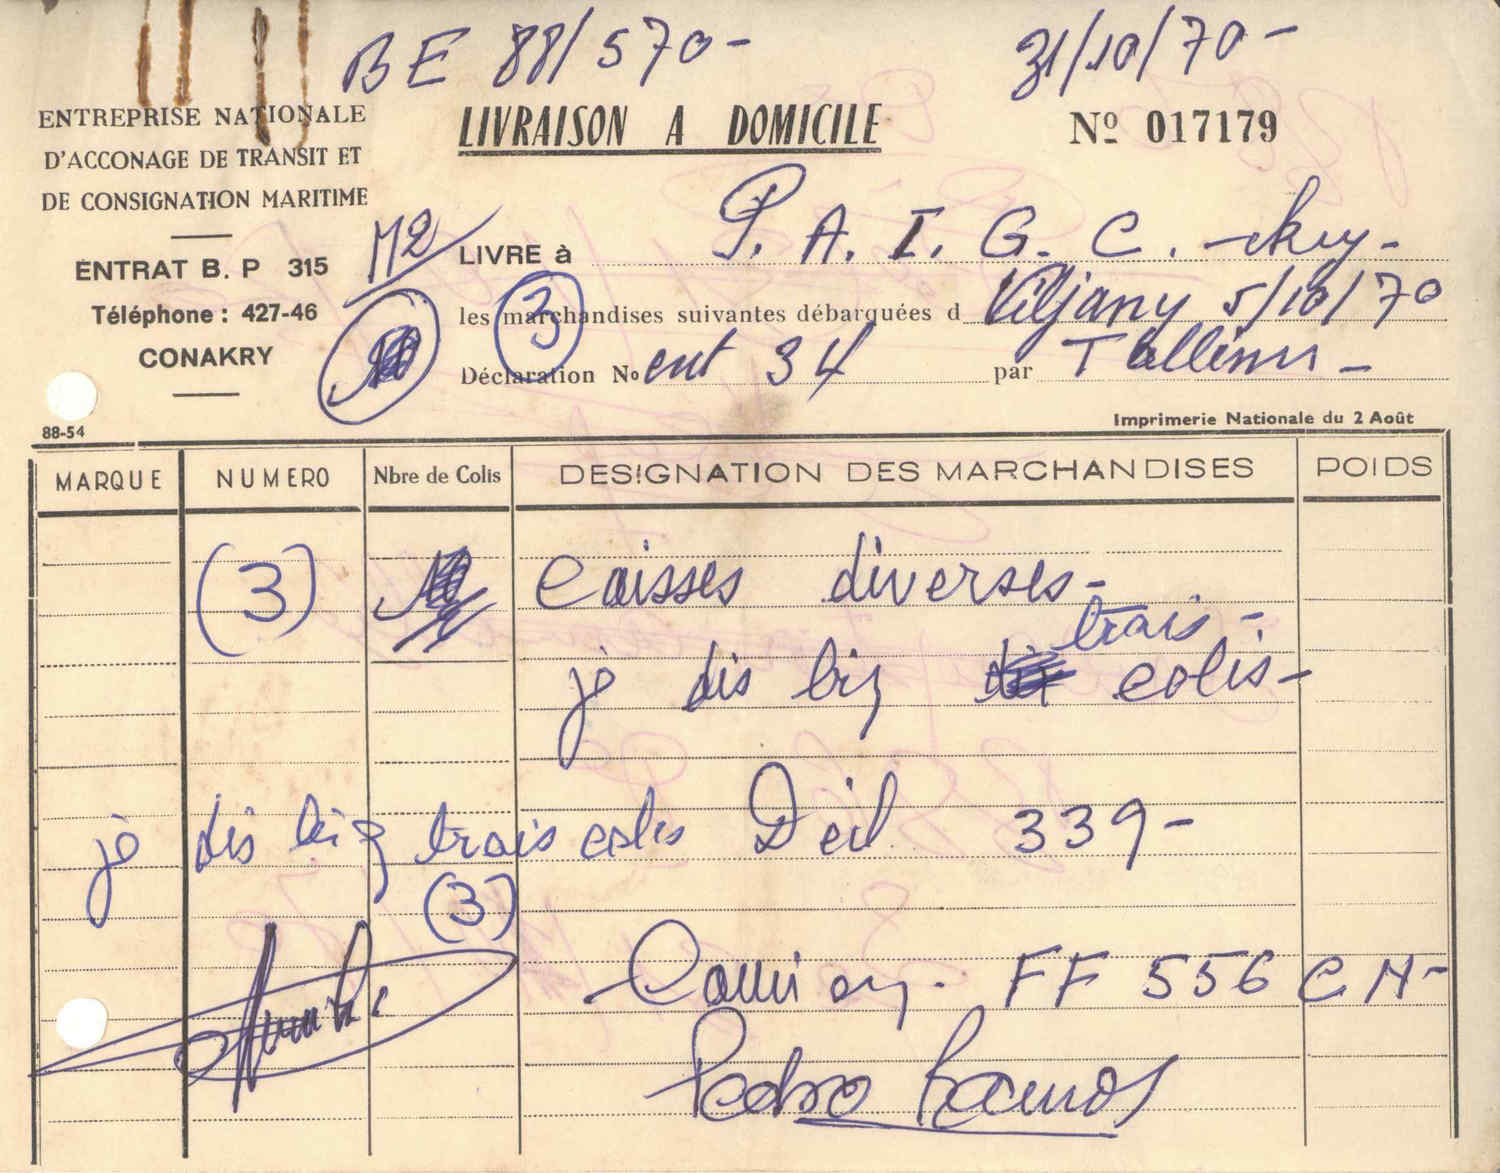 BE 88/570-
31/10/70-
ENTREPRISE NATIONALE
D'ACCONAGE DE TRANSIT ET
DE CONSIGNATION MARITIME
ENTRAT B. P 315
Téléphone : 427-46
CONAKRY
88-54
LIVRAISON A DOMICILE
Nº 017179
M2
LIVRE à P. A. I. G. C. - ckry -
les marchandises suivantes débarquées d 5/10/70
3
Déclaration No ent 34 par Tallinn -
Imprimerie Nationale du 2 Août
MARQUE NUMERO Nbre de Colis DESIGNATION DES MARCHANDISES POIDS
(3) caisses diverses -
trois -
je dis big colis -
je dis big trois colis Decl 339 -
(3)
Camion. FF 556 CM -
Pedro Ramos